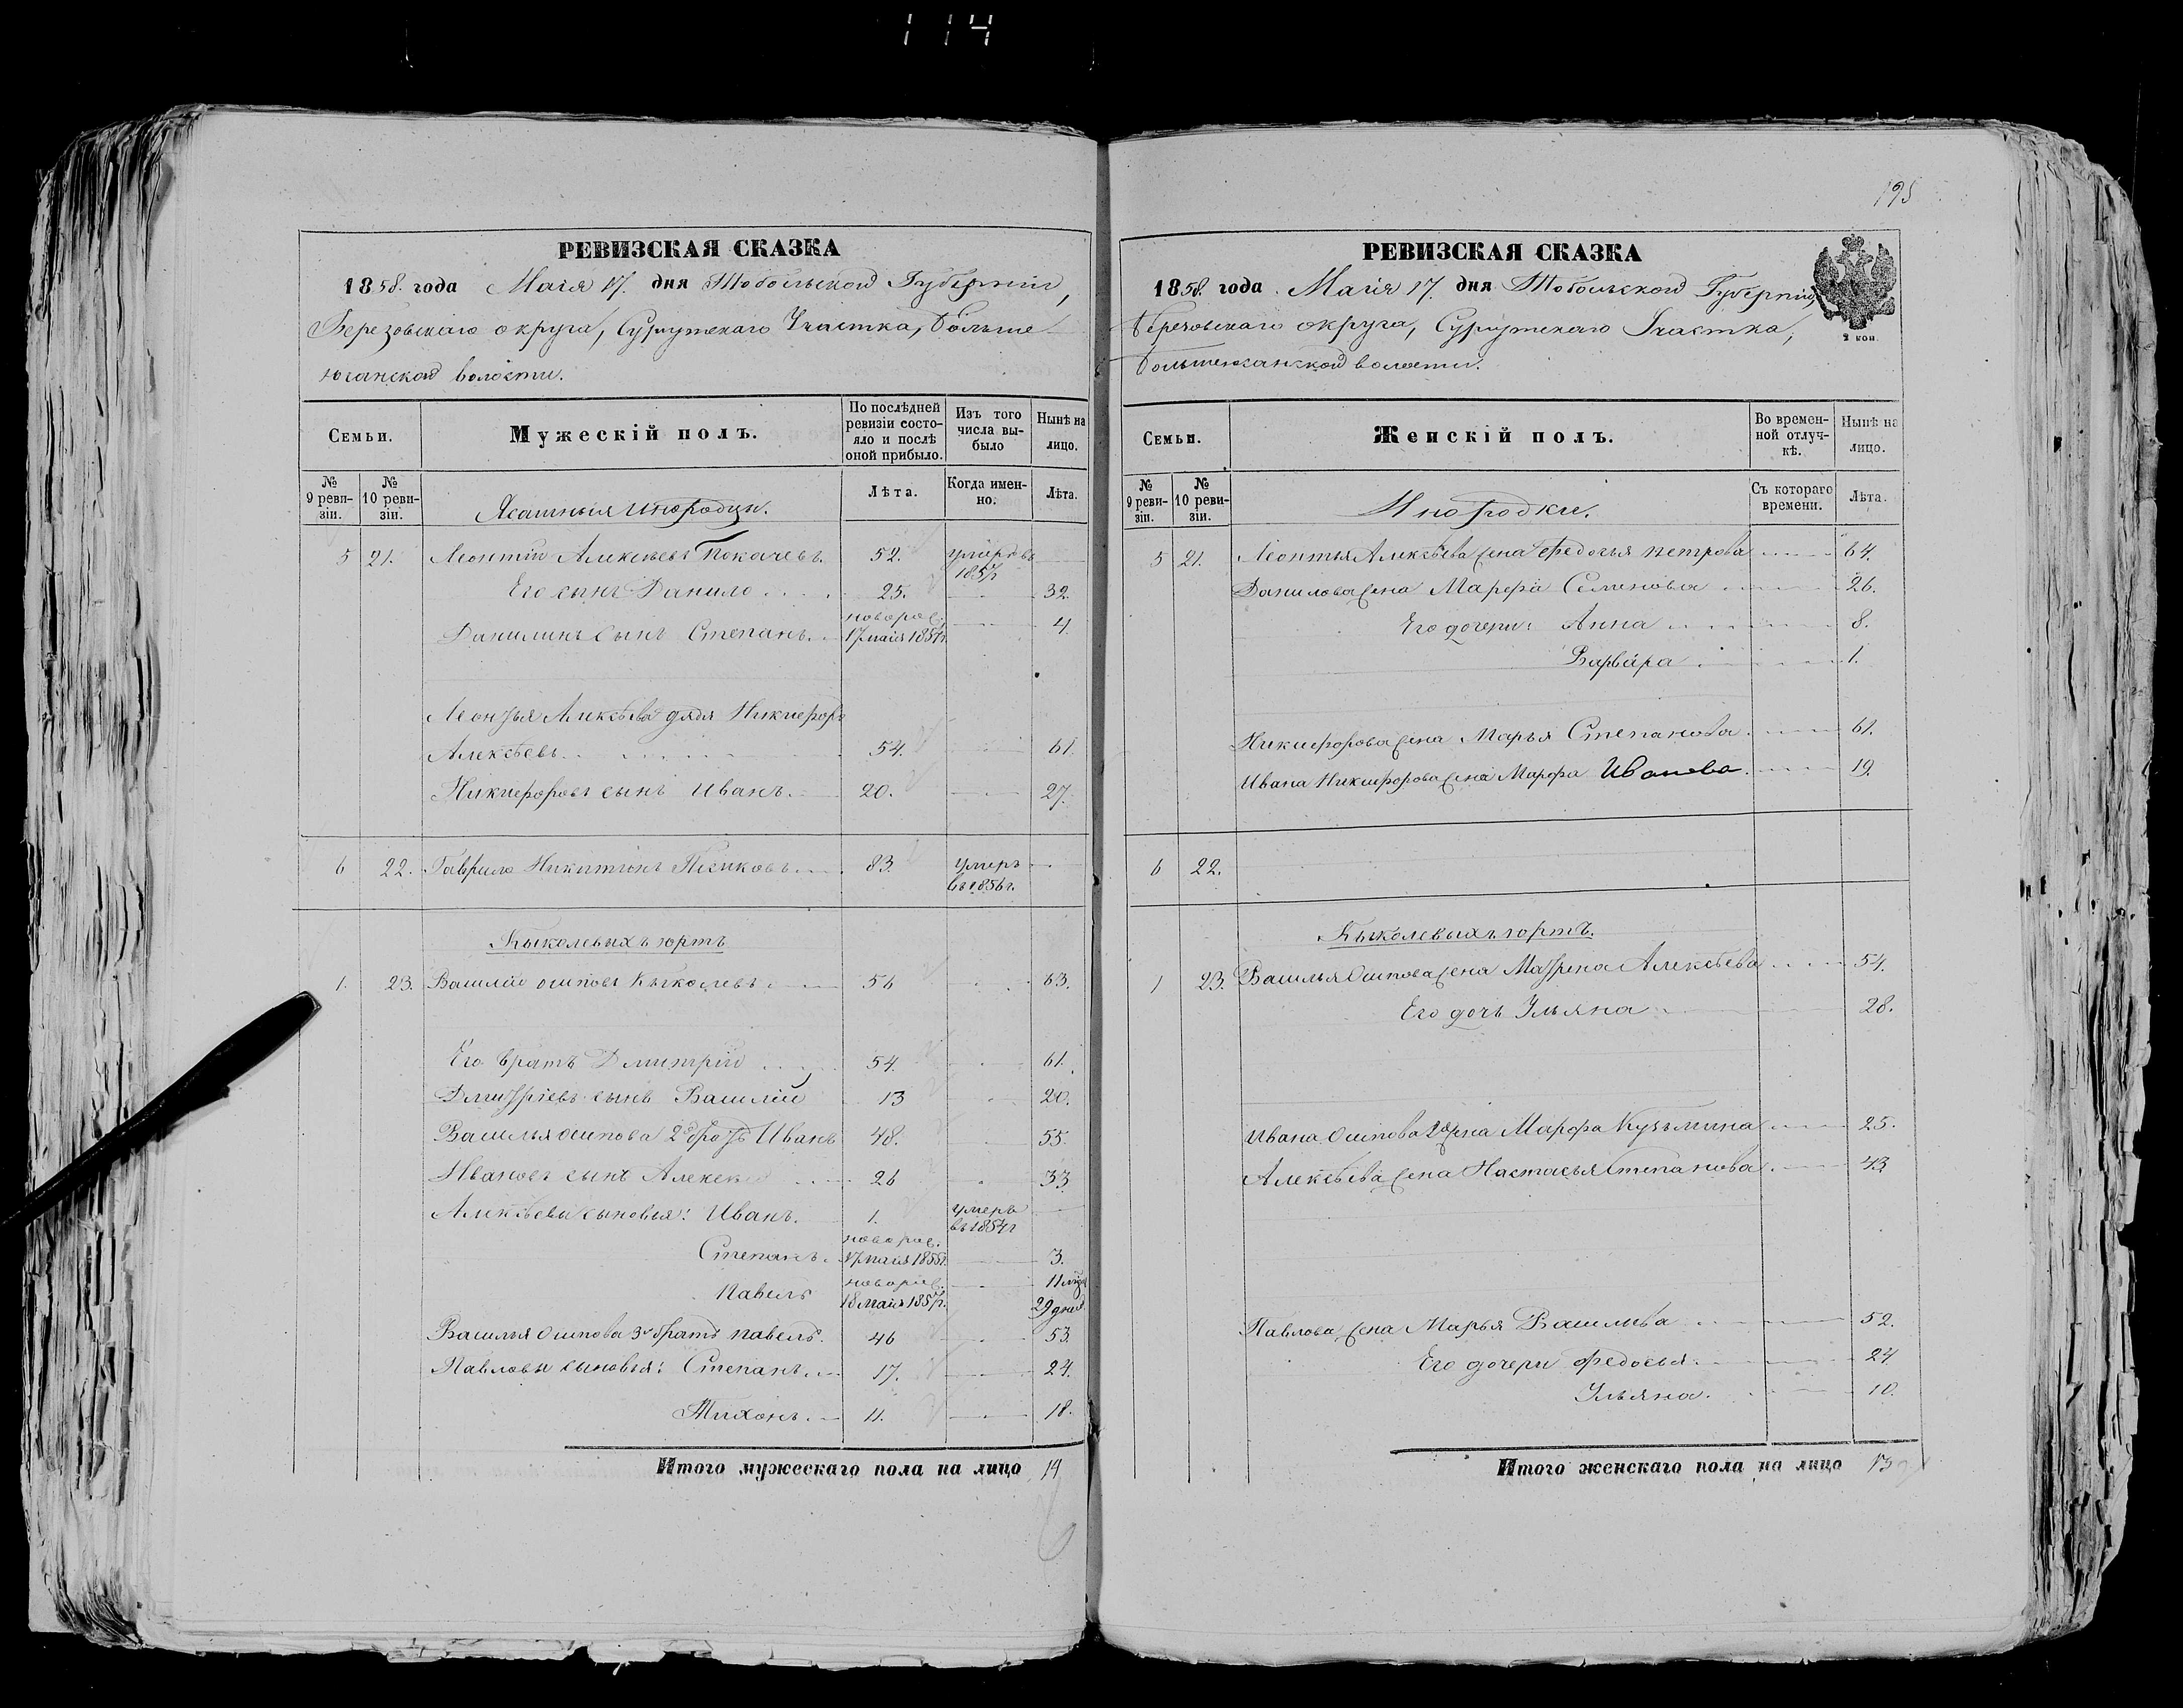 114
РЕВИЗСКАЯ СКАЗКА
1858. года Маія 17. дня Тобольской Губерніи,
Березовскаго округа, Сургутскаго Участка, больше
юганской волости.
Семьи.
Мужескій полъ.
По послѣдней ревизіи состояло и послѣ оной прибыло.
Изъ того числа выбыло
Нынѣ на лицо.
№ 9 ревизіи.
№ 10 ревизіи.
Ясашныя инородцы.
Лѣта.
Когда именно.
Лѣта.
5 21. Леонтій Алексѣевъ Покачевъ. 52. умеръ въ 1857
Его сынъ Данило 25. 32.
Данилинъ сынъ Степанъ. новорож. 17 маія 1854г. 4.
Леонтья Алексѣева дядя Никифоръ
Алексѣевъ 54. 61.
Никифоровъ сынъ Иванъ. 20. 27.
6 22. Гаврило Никитинъ 83. умеръ въ 1856г.
Кыколевыхъ юртъ
1. 23. Василій Осиповъ Кыколевъ. 56 63.
Его братъ Дмитрій 54. 61.
Дмитріевъ сынъ Василій 13 20.
Василья Осипова 2й братъ Иванъ 48. 55.
Ивановъ сынъ Алексѣй 26 33
Алексѣевы сыновья: Иванъ. 1. умеръ въ 1854г
Степанъ. новорож. 17 маія 1855г. 3.
Павелъ новорож. 18 маія 1857г. 11 мѣс 29 дней
Василья Осипова 3й братъ Павелъ. 46 53
Павловы сыновья: Степанъ. 17. 24.
Тихонъ. 11. 18.
Итого мужескаго пола на лицо 14
195
РЕВИЗСКАЯ СКАЗКА
1858. года Маія 17. дня Тобольской Губерніи,
Березовскаго округа, Сургутскаго Участка,
большеюганской волости.
2 коп.
Семьи.
Женскій полъ.
Во временной отлучкѣ.
Нынѣ на лицо.
№ 9 ревизіи.
№ 10 ревизіи.
Инородки.
Съ котораго времени.
Лѣта.
5 21. Леонтья Алексѣева жена Федосья Петрова 64.
Данилова жена Марфа Семенова 26.
Его дочери: Анна 8.
Варвара 1.
Никифорова жена Марья Степанова 61.
Ивана Никифорова жена Марфа Иванова. 19.
6 22.
Кыколевыхъ юртъ.
1 23. Василья Осипова жена Матрена Алексѣева 54.
Его дочь Ульяна 28.
Ивана Осипова 2я жена Марфа Кузьмина 25.
Алексѣева жена Настасья Степанова. 43
Павлова жена Марья Васильева 52.
Его дочери Федосья 24
Ульяна. 10.
Итого женскаго пола на лицо 13